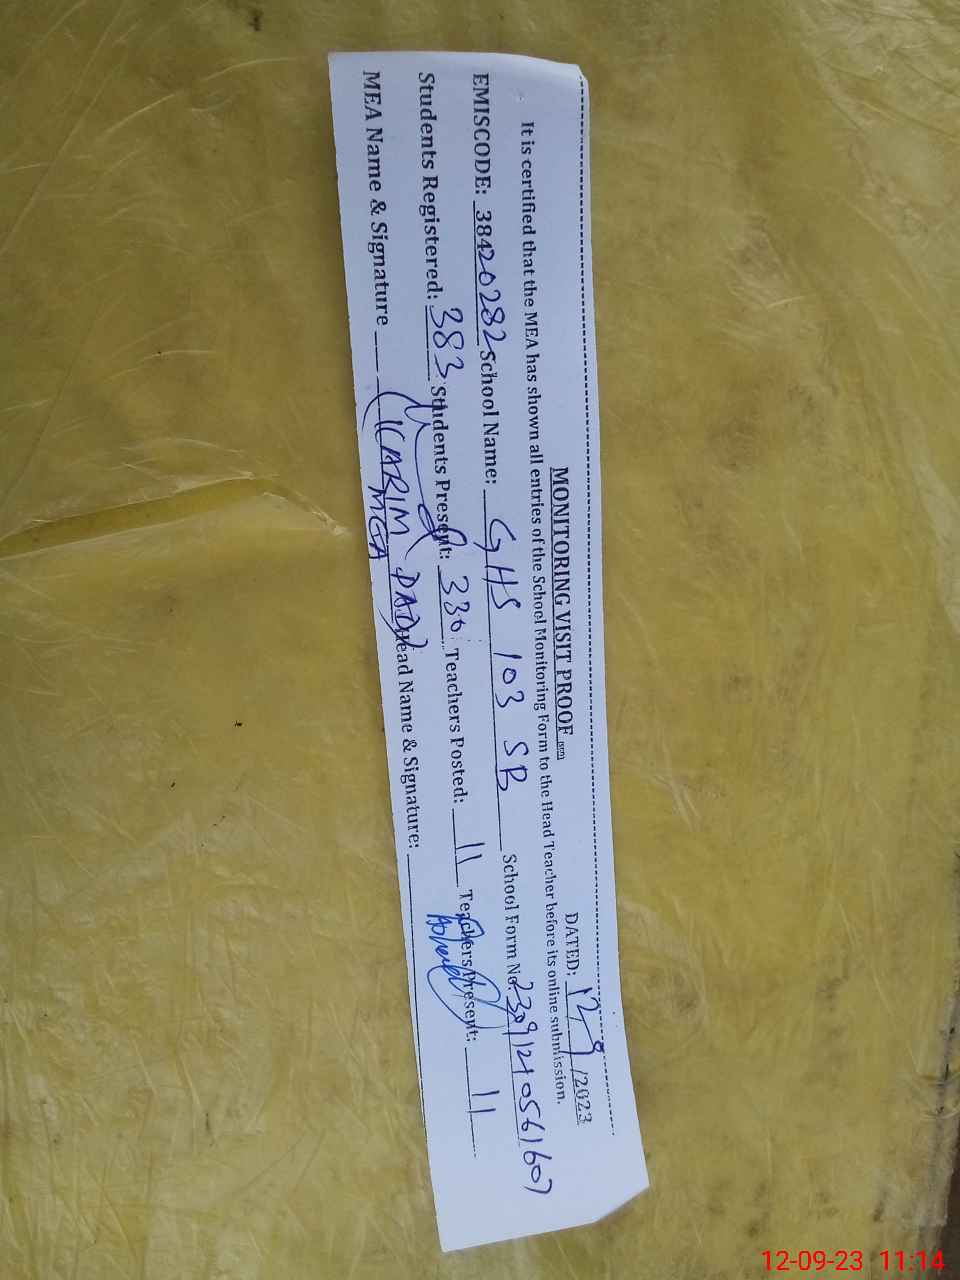 MONITORING VISIT PROOF
DATED: 12-9/2023
It is certified that the MEA has shown all entries of the School Monitoring Form to the Head Teacher before its online submission.
EMISCODE: 38420282 School Name: GHS 103 SB School Form No. 23091210561607
Students Registered: 383 Students Present: 330 Teachers Posted: 11 Teachers Present: 11
MEA Name & Signature (KARIM DAD) Head Name & Signature:
MEA
12-09-23 11:14